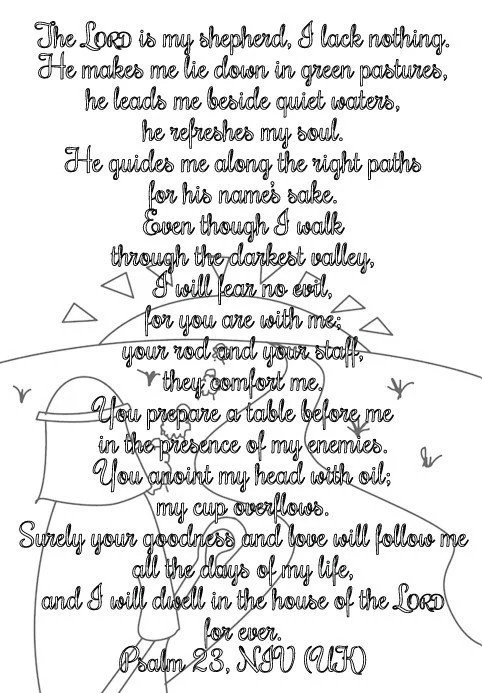 The LORD is my shepherd, I lack nothing.
He makes me lie down in green pastures,
he leads me beside quiet waters,
he refreshes my soul.
He guides me along the right paths
for his name's sake.
Even though I walk
through the darkest valley,
I will fear no evil,
for you are with me;
your rod and your staff,
they comfort me.
You prepare a table before me
in the presence of my enemies.
You anoint my head with oil;
my cup overflows.
Surely your goodness and love will follow me
all the days of my life,
and I will dwell in the house of the LORD
for ever.
Psalm 23, NIV (UK)